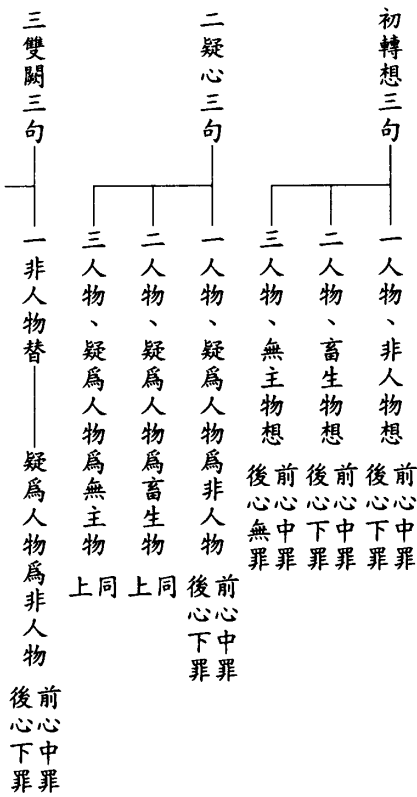 初轉想三句
一人物、非人物想
前心中罪
後心下罪
二人物、畜生物想
前心中罪
後心下罪
三人物、無主物想
前心中罪
後心無罪
二疑心三句
一人物、疑爲人物爲非人物
前心中罪
後心下罪
二人物、疑爲人物爲畜生物
同上
三人物、疑爲人物爲無主物
同上
三雙闕三句
一非人物替
疑爲人物爲非人物
前心中罪
後心下罪